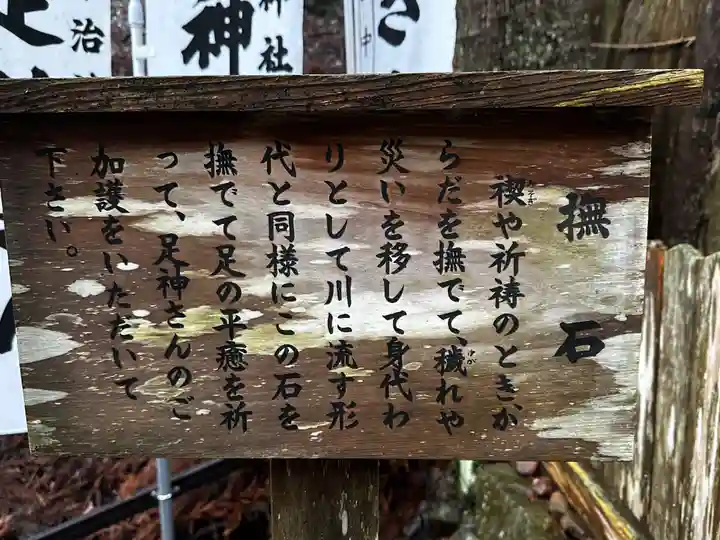 撫石
禊や祈祷のときか
らだを撫でて、穢れや
災いを移して身代わ
りとして川に流す形
代と同様にこの石を
撫でて足の平癒を祈
って、足神さんのご
加護をいただいて
下さい。
治
神
神社
さ
中